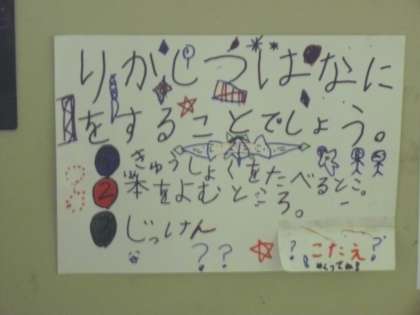 りかしつはなに
をすることでしょう。
1 きゅうしょくをたべるとこ。
2 本をよむところ。
3 じっけん
??
? こたえ ?
めくってね